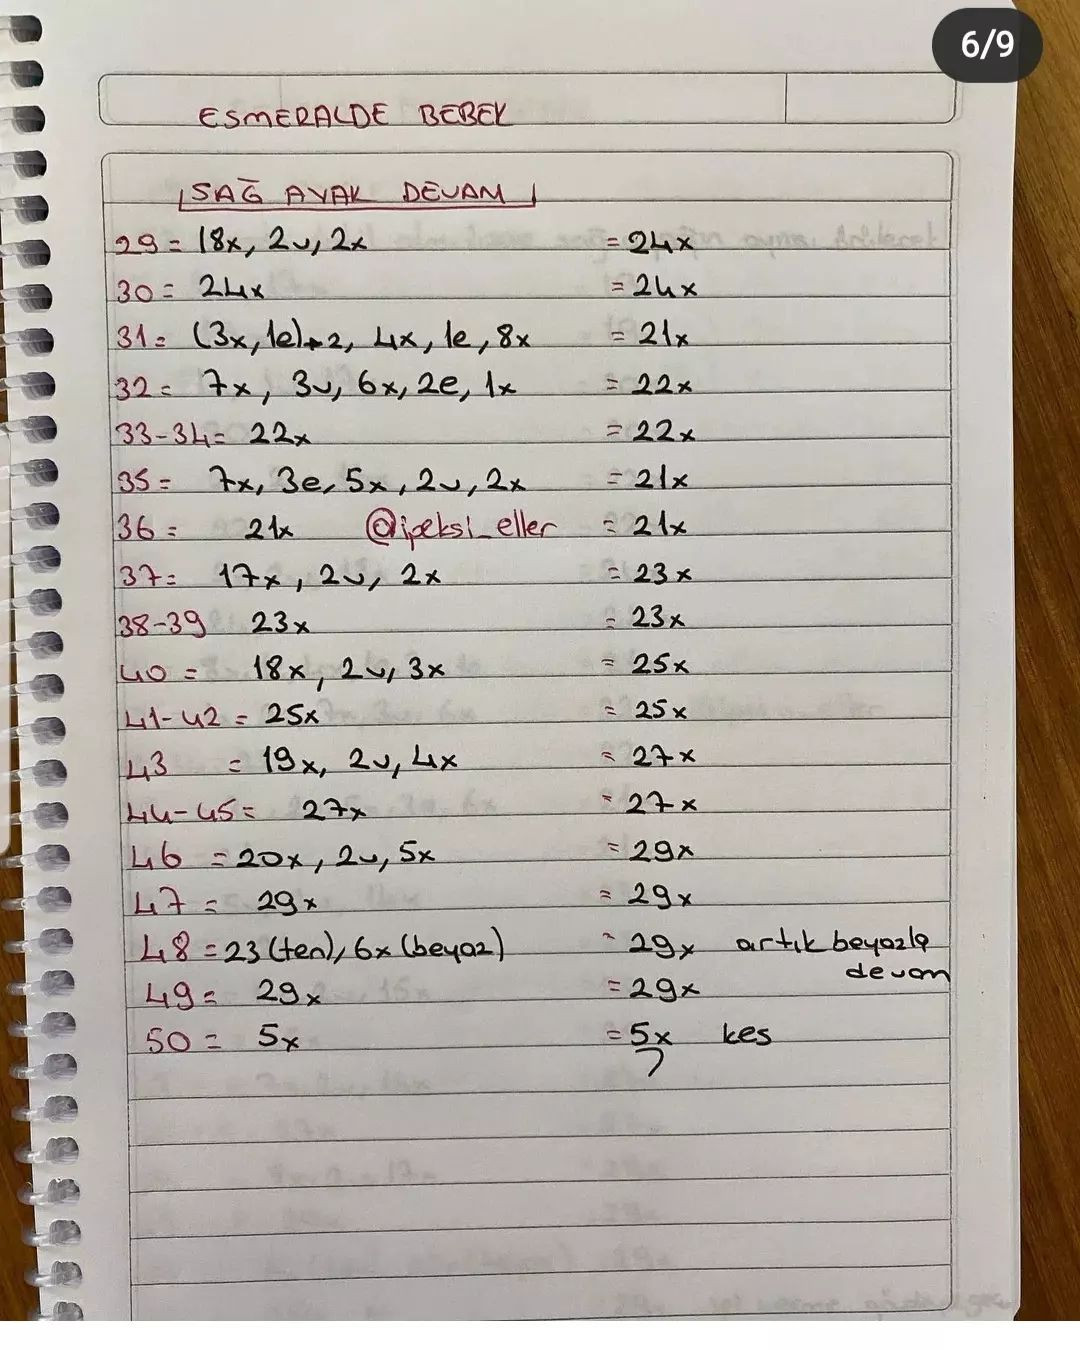 6/9
ESMERALDE BEBEK
SAĞ AYAK DEVAM
29= 18x, 2v, 2x =24x
30= 24x =24x
31= (3x, 1e)*2, 4x, 1e, 8x =21x
32= 7x, 3v, 6x, 2e, 1x =22x
33-34= 22x =22x
35= 7x, 3e, 5x, 2v, 2x =21x
36= 21x @ipeksi_eller =21x
37= 17x, 2v, 2x =23x
38-39 23x =23x
40= 18x, 2v, 3x =25x
41-42= 25x =25x
43 = 19x, 2v, 4x =27x
44-45= 27x =27x
46 =20x, 2v, 5x =29x
47= 29x =29x
48=23(ten), 6x(beyaz) =29x artık beyazla
devam
49= 29x =29x
50= 5x =5x kes